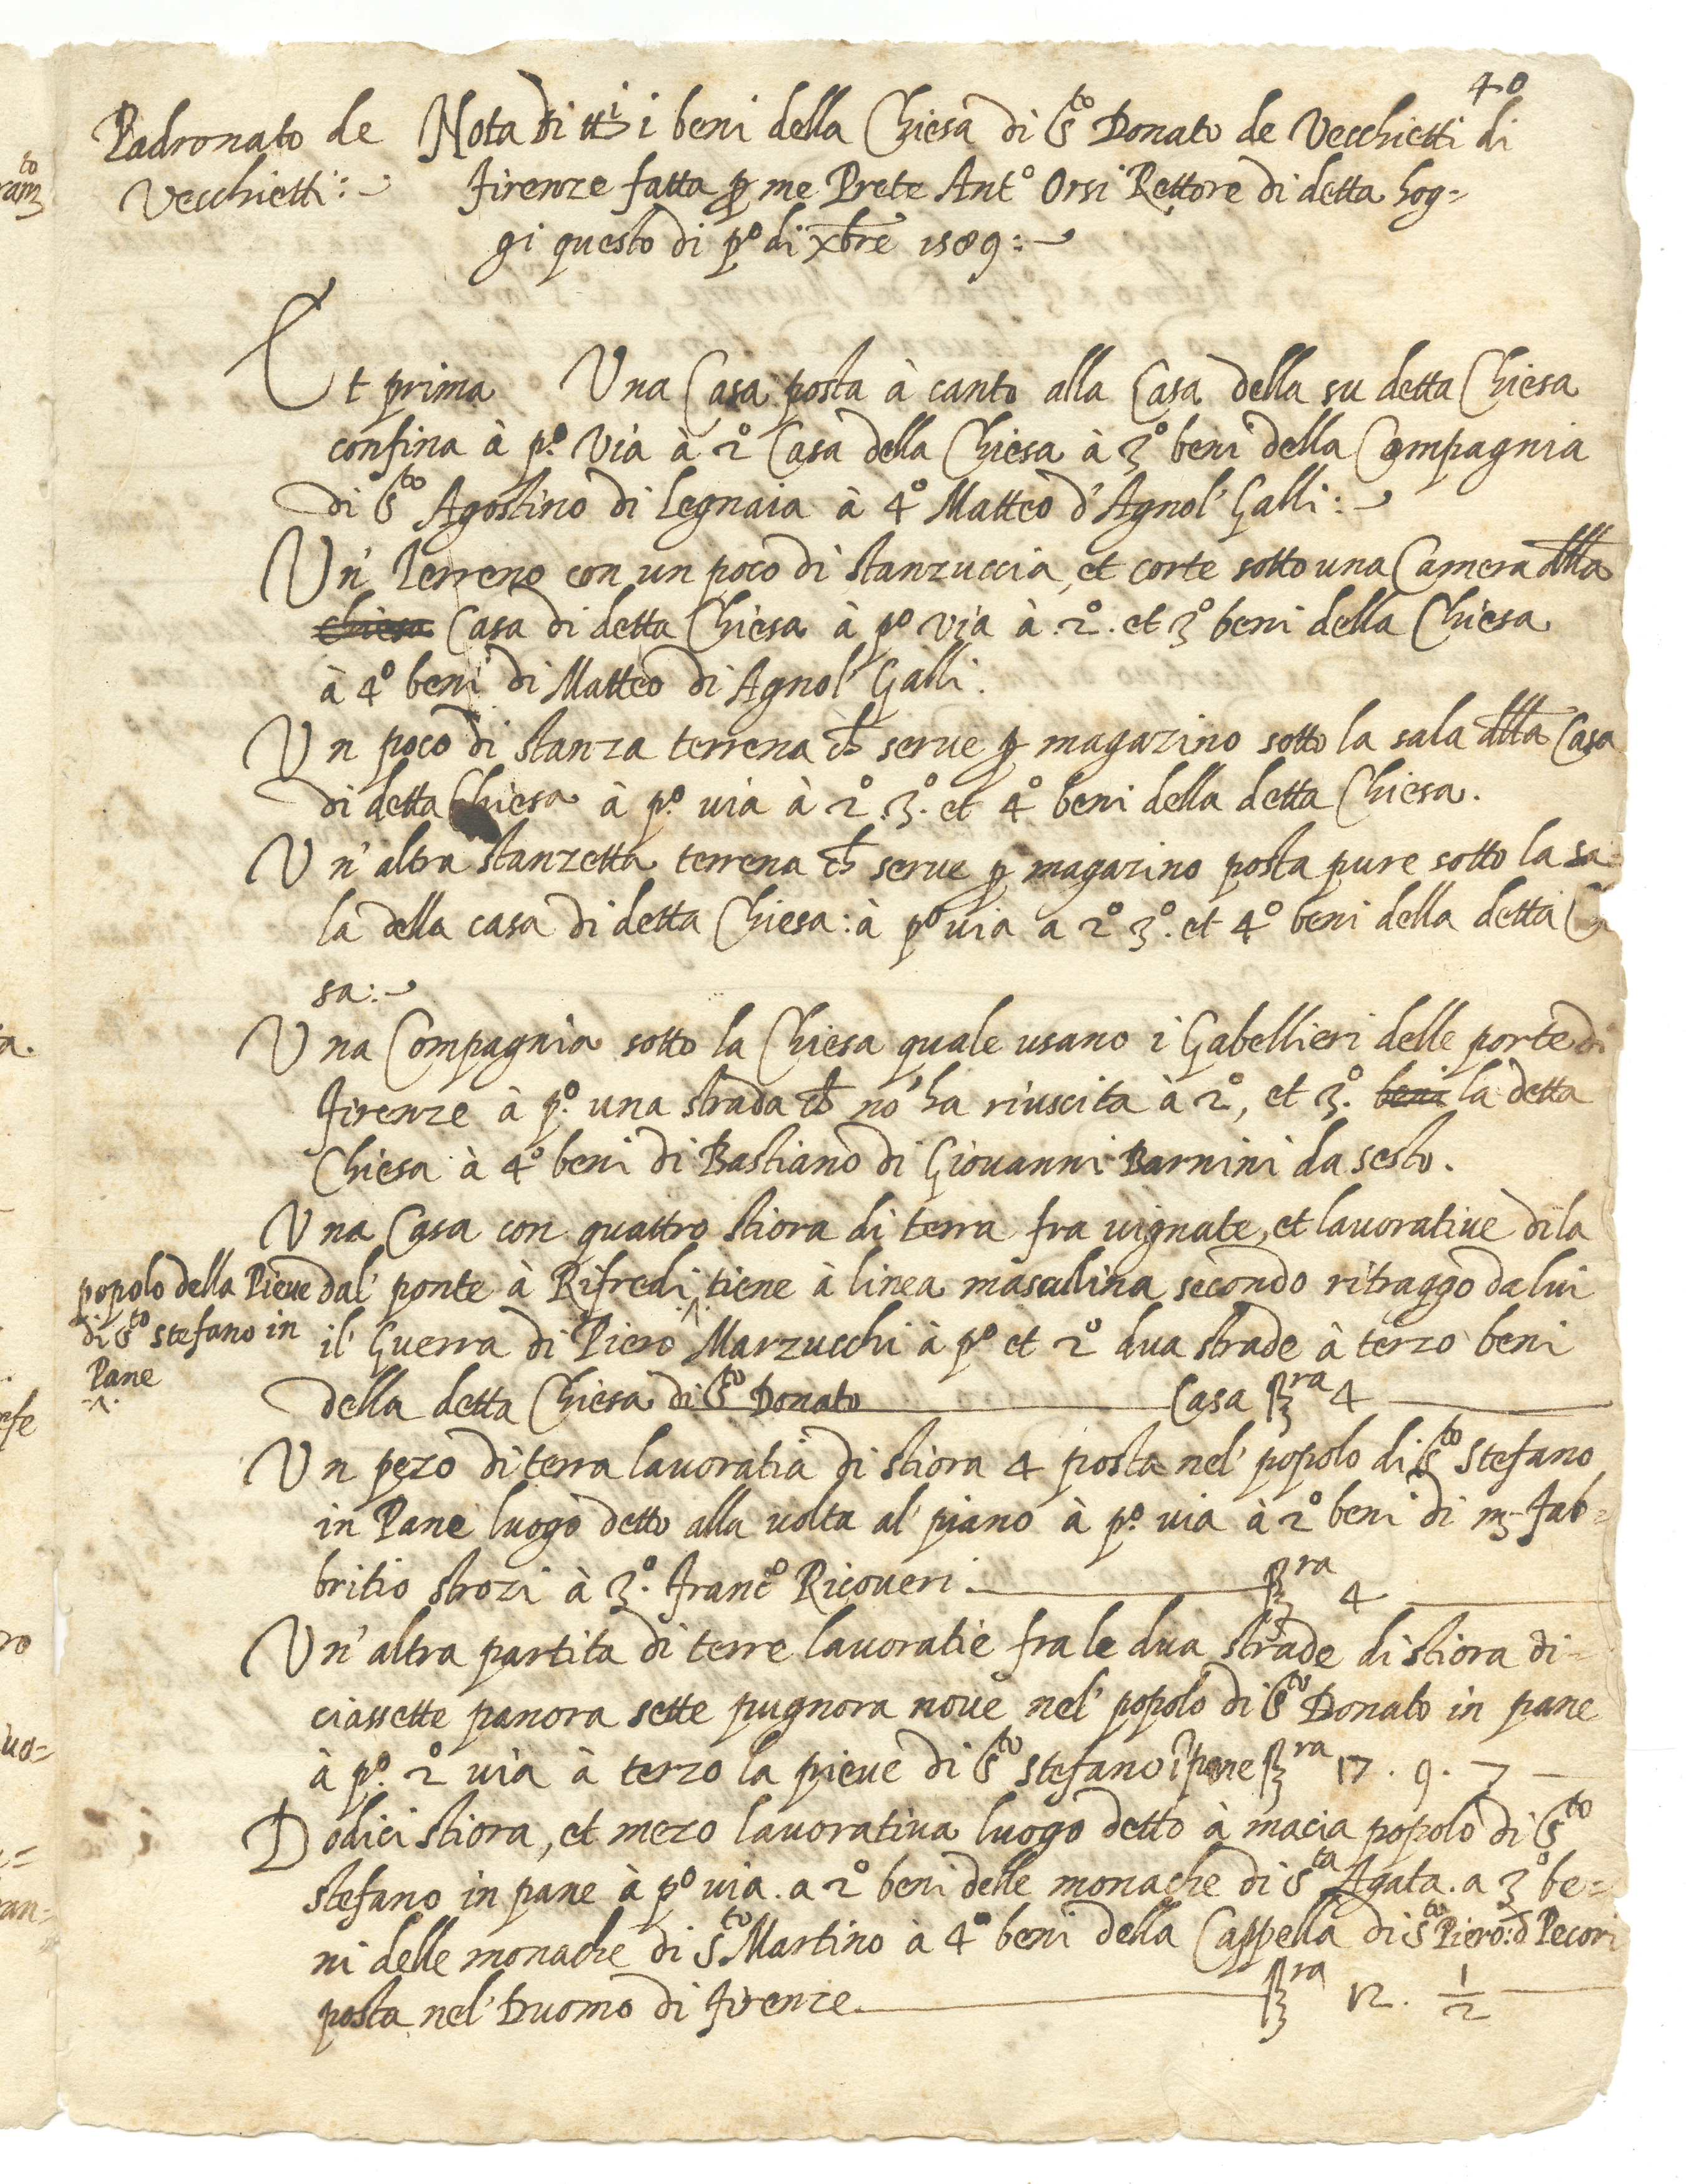 40
Padronato de
Vecchietti:
Nota di tti i beni della Chiesa di Sto Donato de Vecchietti di
Firenze fatta p me Prete Anto Orsi Rettore di detta hog=
gi questo di po di xbre 1589:
Et prima Una Casa posta à canto alla Casa della su detta Chiesa
confina à po. via à 2o Casa della Chiesa à 3o beni della Compagnia
di Sto Agostino di Legnaia à 4o Matteo d'Agnol' Galli:
Un' Terreno con un poco di stanzuccia, et corte sotto una Camera della
chiesa Casa di detta Chiesa à po via à .2o. et 3o beni della Chiesa
à 4o beni di Matteo di Agnol' Galli.
Un poco di stanza terrena ch serve p magazino sotto la sala della Casa
di detta Chiesa à po. via à 2o. 3o. et 4o beni della detta Chiesa.
Un'altra stanzetta terrena ch serve p magazino posta pure sotto la sa=
la della casa di detta Chiesa: à po via a 2o 3o. et 4o beni della detta
sa:
Una Compagnia sotto la Chiesa quale usano i Gabellieri delle porte di
Firenze à po. una strada ch no' ha riuscita à 2o, et 3o. beni la detta
Chiesa à 4o beni di Bastiano di Giovanni Barnini da sesto.
Una Casa con quattro stiora di terra fra vignate, et lavorative di la
dal' ponte à Rifredi ^ tiene à linea masculina secondo ritraggo da lui
popolo della Pieve
di Sto Stefano in
Pane
il' Guerra di Piero Marzucchi à po et 2o dua strade à terzo beni
della detta Chiesa di Sto Donato Casa stra 4
Un pezo di terra lavoratia di stiora 4 posta nel' popolo di Sto Stefano
in Pane luogo detto alla volta al' piano à po. via à 2o beni di m. Fab=
britio strozi à 3o. Franco Ricoveri. stra 4
Un'altra partita di terre lavoratie fra le dua strade di stiora di=
ciassette panora sette pugnora nove nel' popolo di Sto Donato in pane
à po. 2o via à terzo la pieve di Sto Stefano i pane stra 17. 9. 7
Dodici stiora, et mezo lavorativa luogo detto à macia popolo di Sto
stefano in pane à po via. a 2o beni delle monache di Sta Agata. a 3o be=
ni delle monache di Sto Martino à 4o beni della Cappella di Sto Piero: d Pecori
posta nel' Duomo di Firenze. stra 12. 1/2